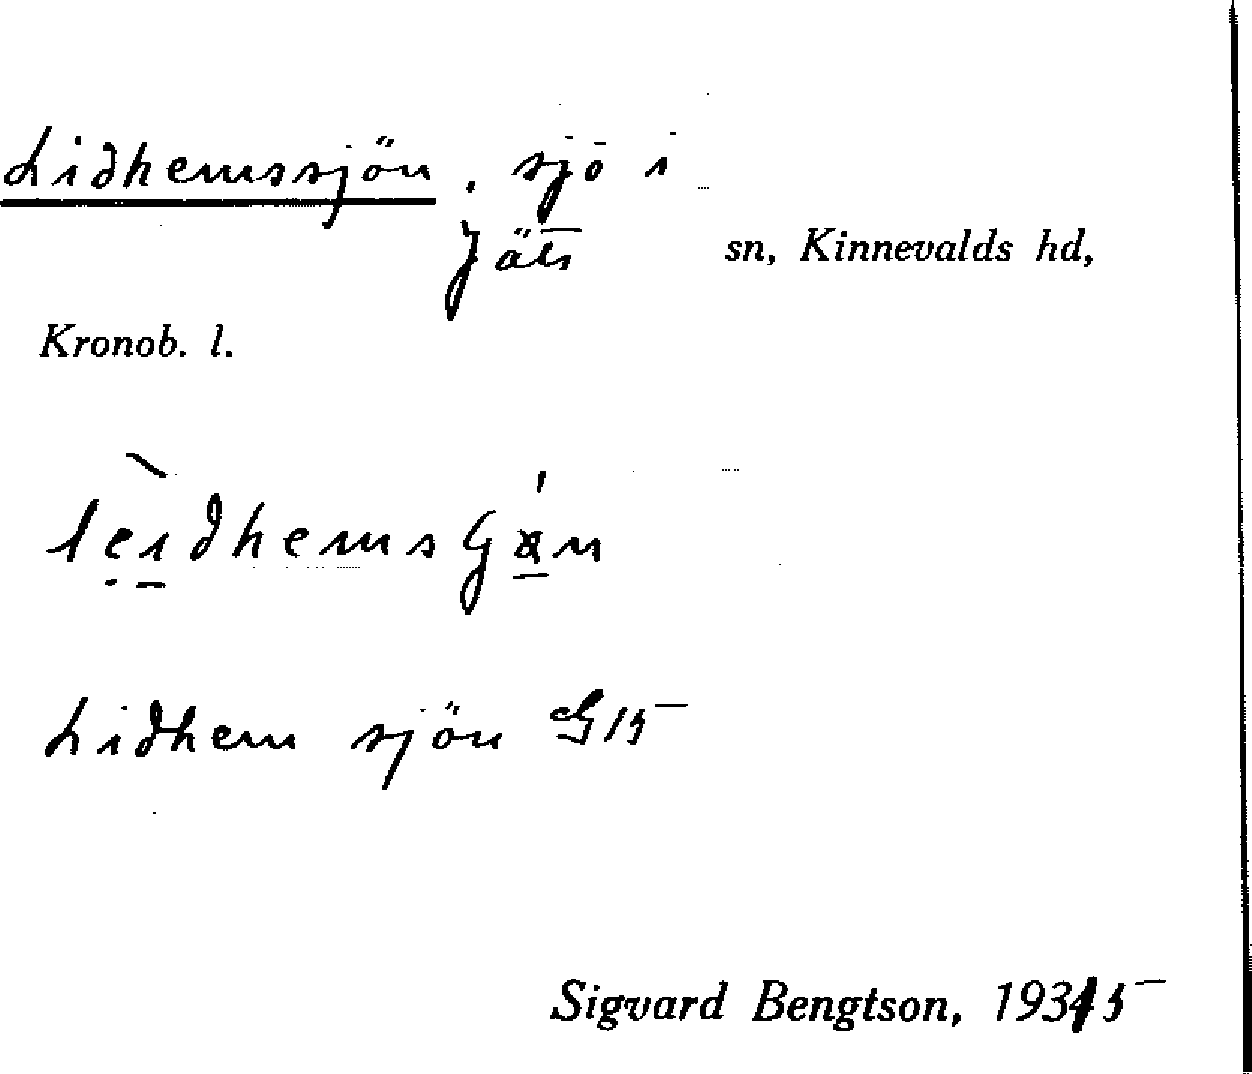 Lidhemssjön, sjö i
Jäts sn, Kinnevalds hd,
Kronob. l.
Lidhem sjön G 15
Sigvard Bengtson, 1935